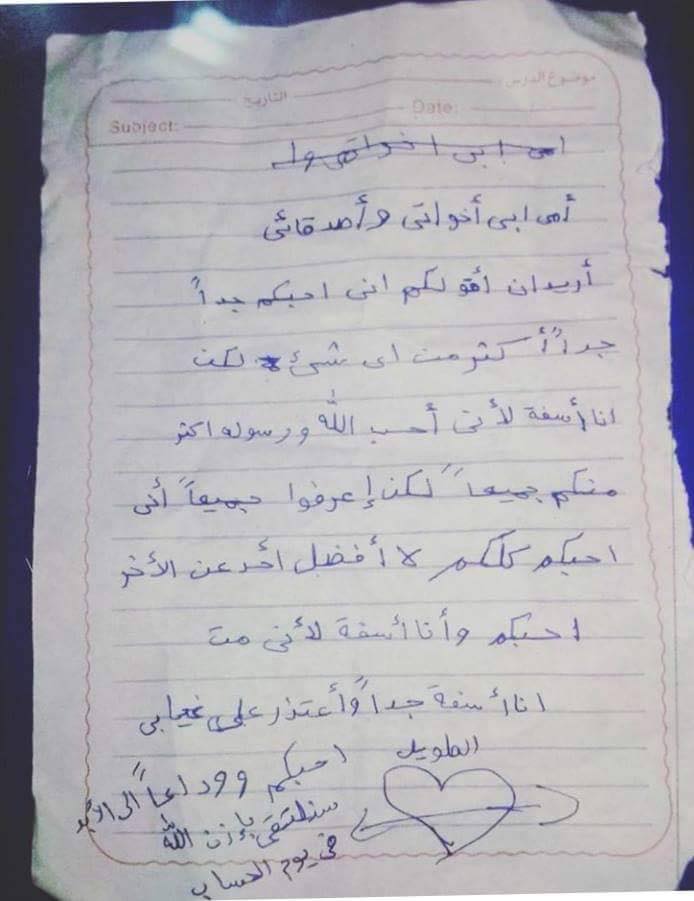 موضوع الدرس:
التاريخ
Date:
Subject:
امى ابى اخواتى وا
أمى ابى أخواتى وأصدقائى
أريد ان أقولكم انى احبكم جداً
جداً أكثر من اى شئ لكن
انا أسفة لأنى أحب الله ورسوله اكثر
منكم جميعاً لكن إعرفوا جميعاً أنى
احبكم كلكم لا أفضل أحد عن الأخر
احبكم وأنا أسفة لأنى مت
انا أسفة جداً وأعتذر على غيابى
الطويل
احبكم ووداعاً الى الأبد
سنلتقى بإذن الله
فى يوم الحساب